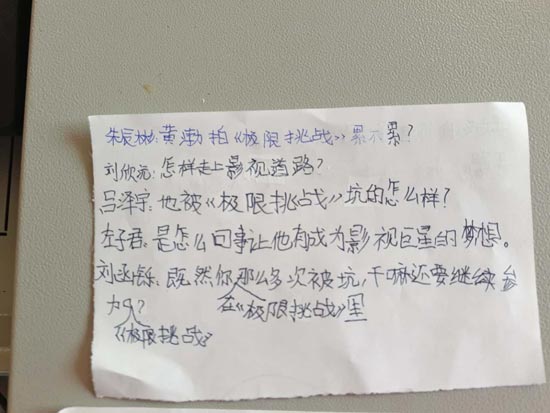 朱辰彬:黄渤拍《极限挑战》累不累?
刘欣沅:怎样走上影视道路?
吕泽宇:他被《极限挑战》坑的怎么样?
左子君:是怎么回事让他有成为影视巨星的梦想。
刘丞铄:既然你那么多次被坑,干嘛还要继续参
加?    在《极限挑战》里
《极限挑战》